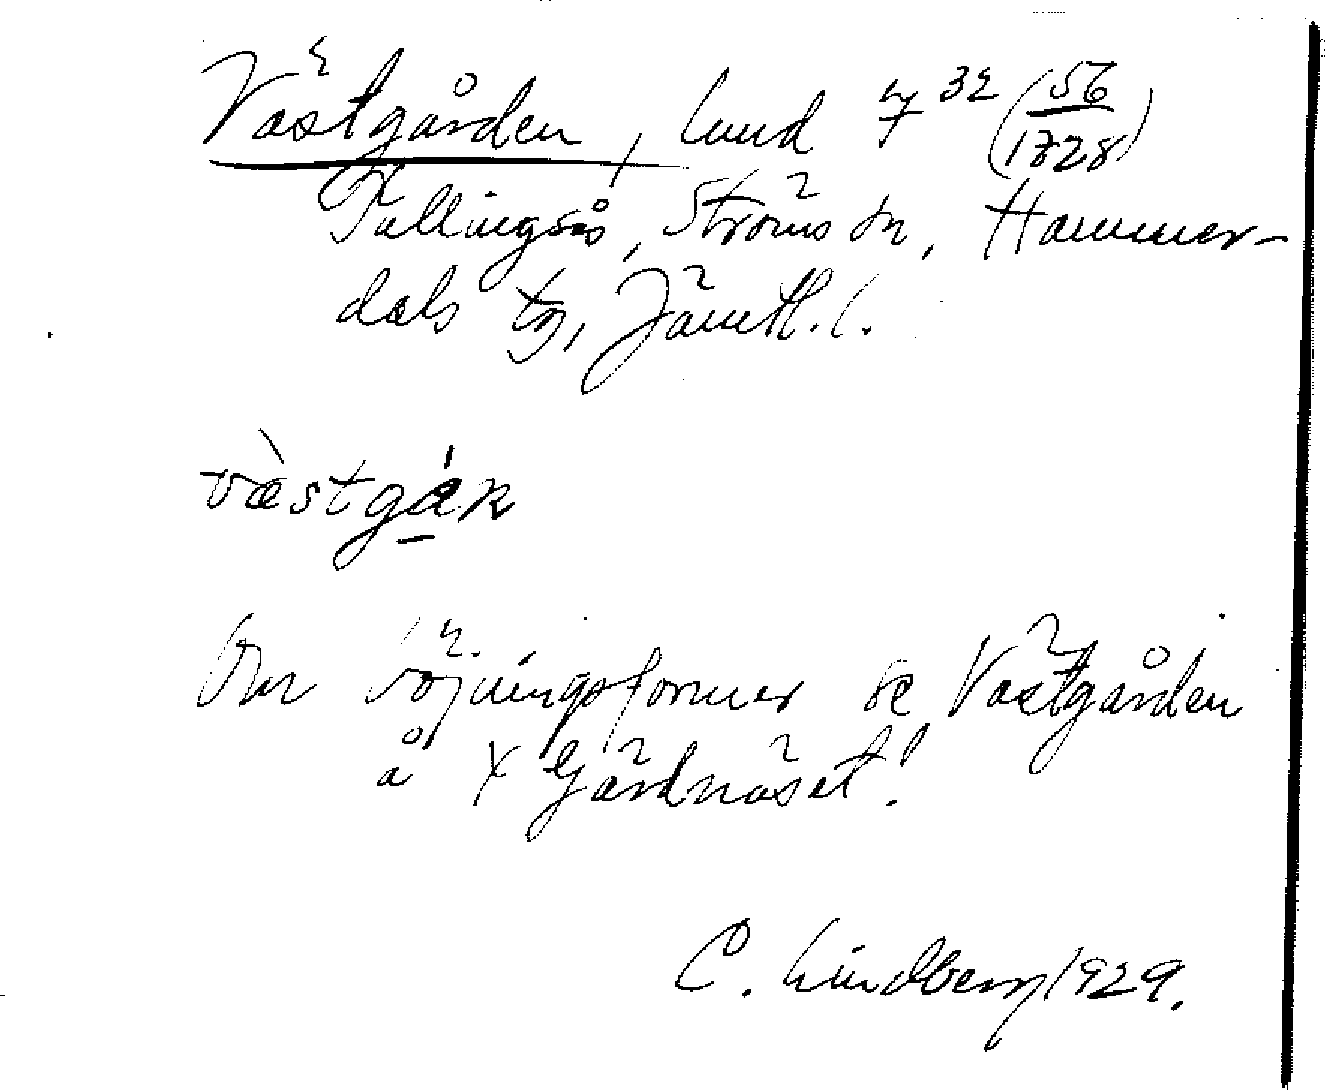 Västgården, hmd 7 32 (56/1728)
Tullingsås, Ströms sn, Hammer-
dals tg, Jämtl. l.
væ̀stgá̱ꞃ
Om böjningsformer se Västgården
å X Gärdnäset!
C. Lindberg 1929.